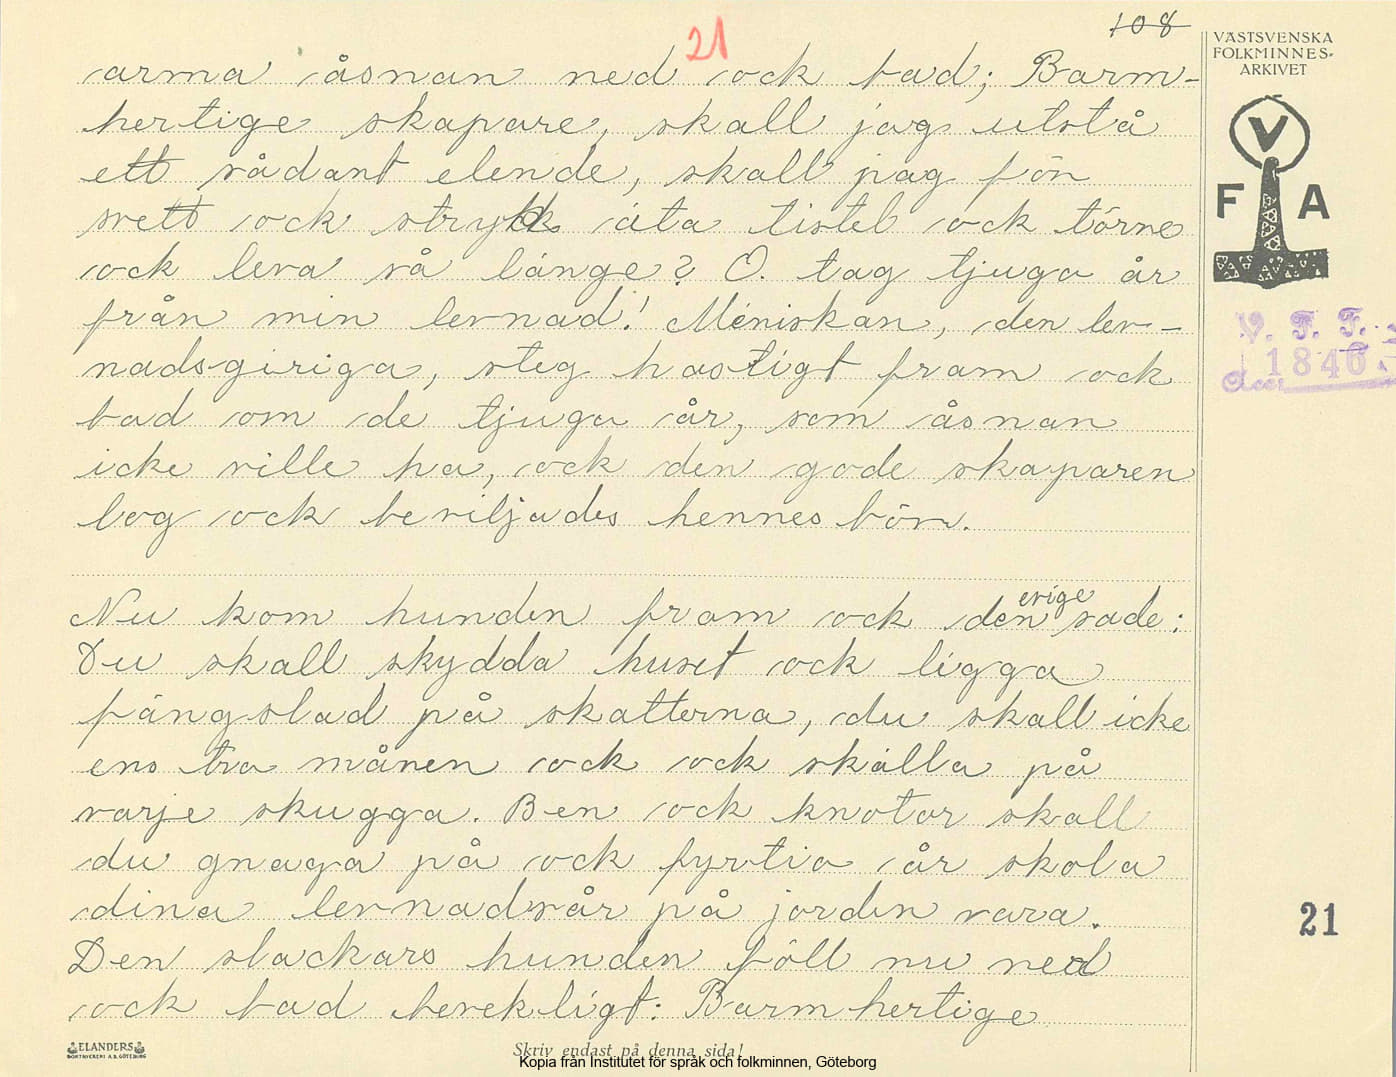 108
21
VÄSTSVENSKA
FOLKMINNES-
ARKIVET
V
F A
V. F. F.
1840.
Acc.
arma åsnan ned ock bad; Barm-
hertige skapare, skall jag utstå
ett sådant elende, skall jag för
svett ock stryk äta tistel ock törne
ock leva så länge? O. tag tjugo år
från min levnad! Méniskan, den lev-
nadsgiriga, steg hastigt fram ock
bad om de tjugo år, som åsnan
icke ville ha, ock den gode skaparen
log ock beviljades hennes bön.
Nu kom hunden fram ock den evige sade:
Du skall skydda huset ock ligga
fängslad på skatterna, du skall icke
ens tro månen ock ock skälla på
varje skugga. Ben ock knotor skall
du gnaga på ock fyrtio år skola
dina levnadsår på jorden vara.
Den slackars hunden föll nu ned
ock bad bevekligt: Barmhertige
21
ELANDERS
BOKTRYCKERI A.B. GÖTEBORG
Skriv endast på denna sida!
Kopia från Institutet för språk och folkminnen, Göteborg